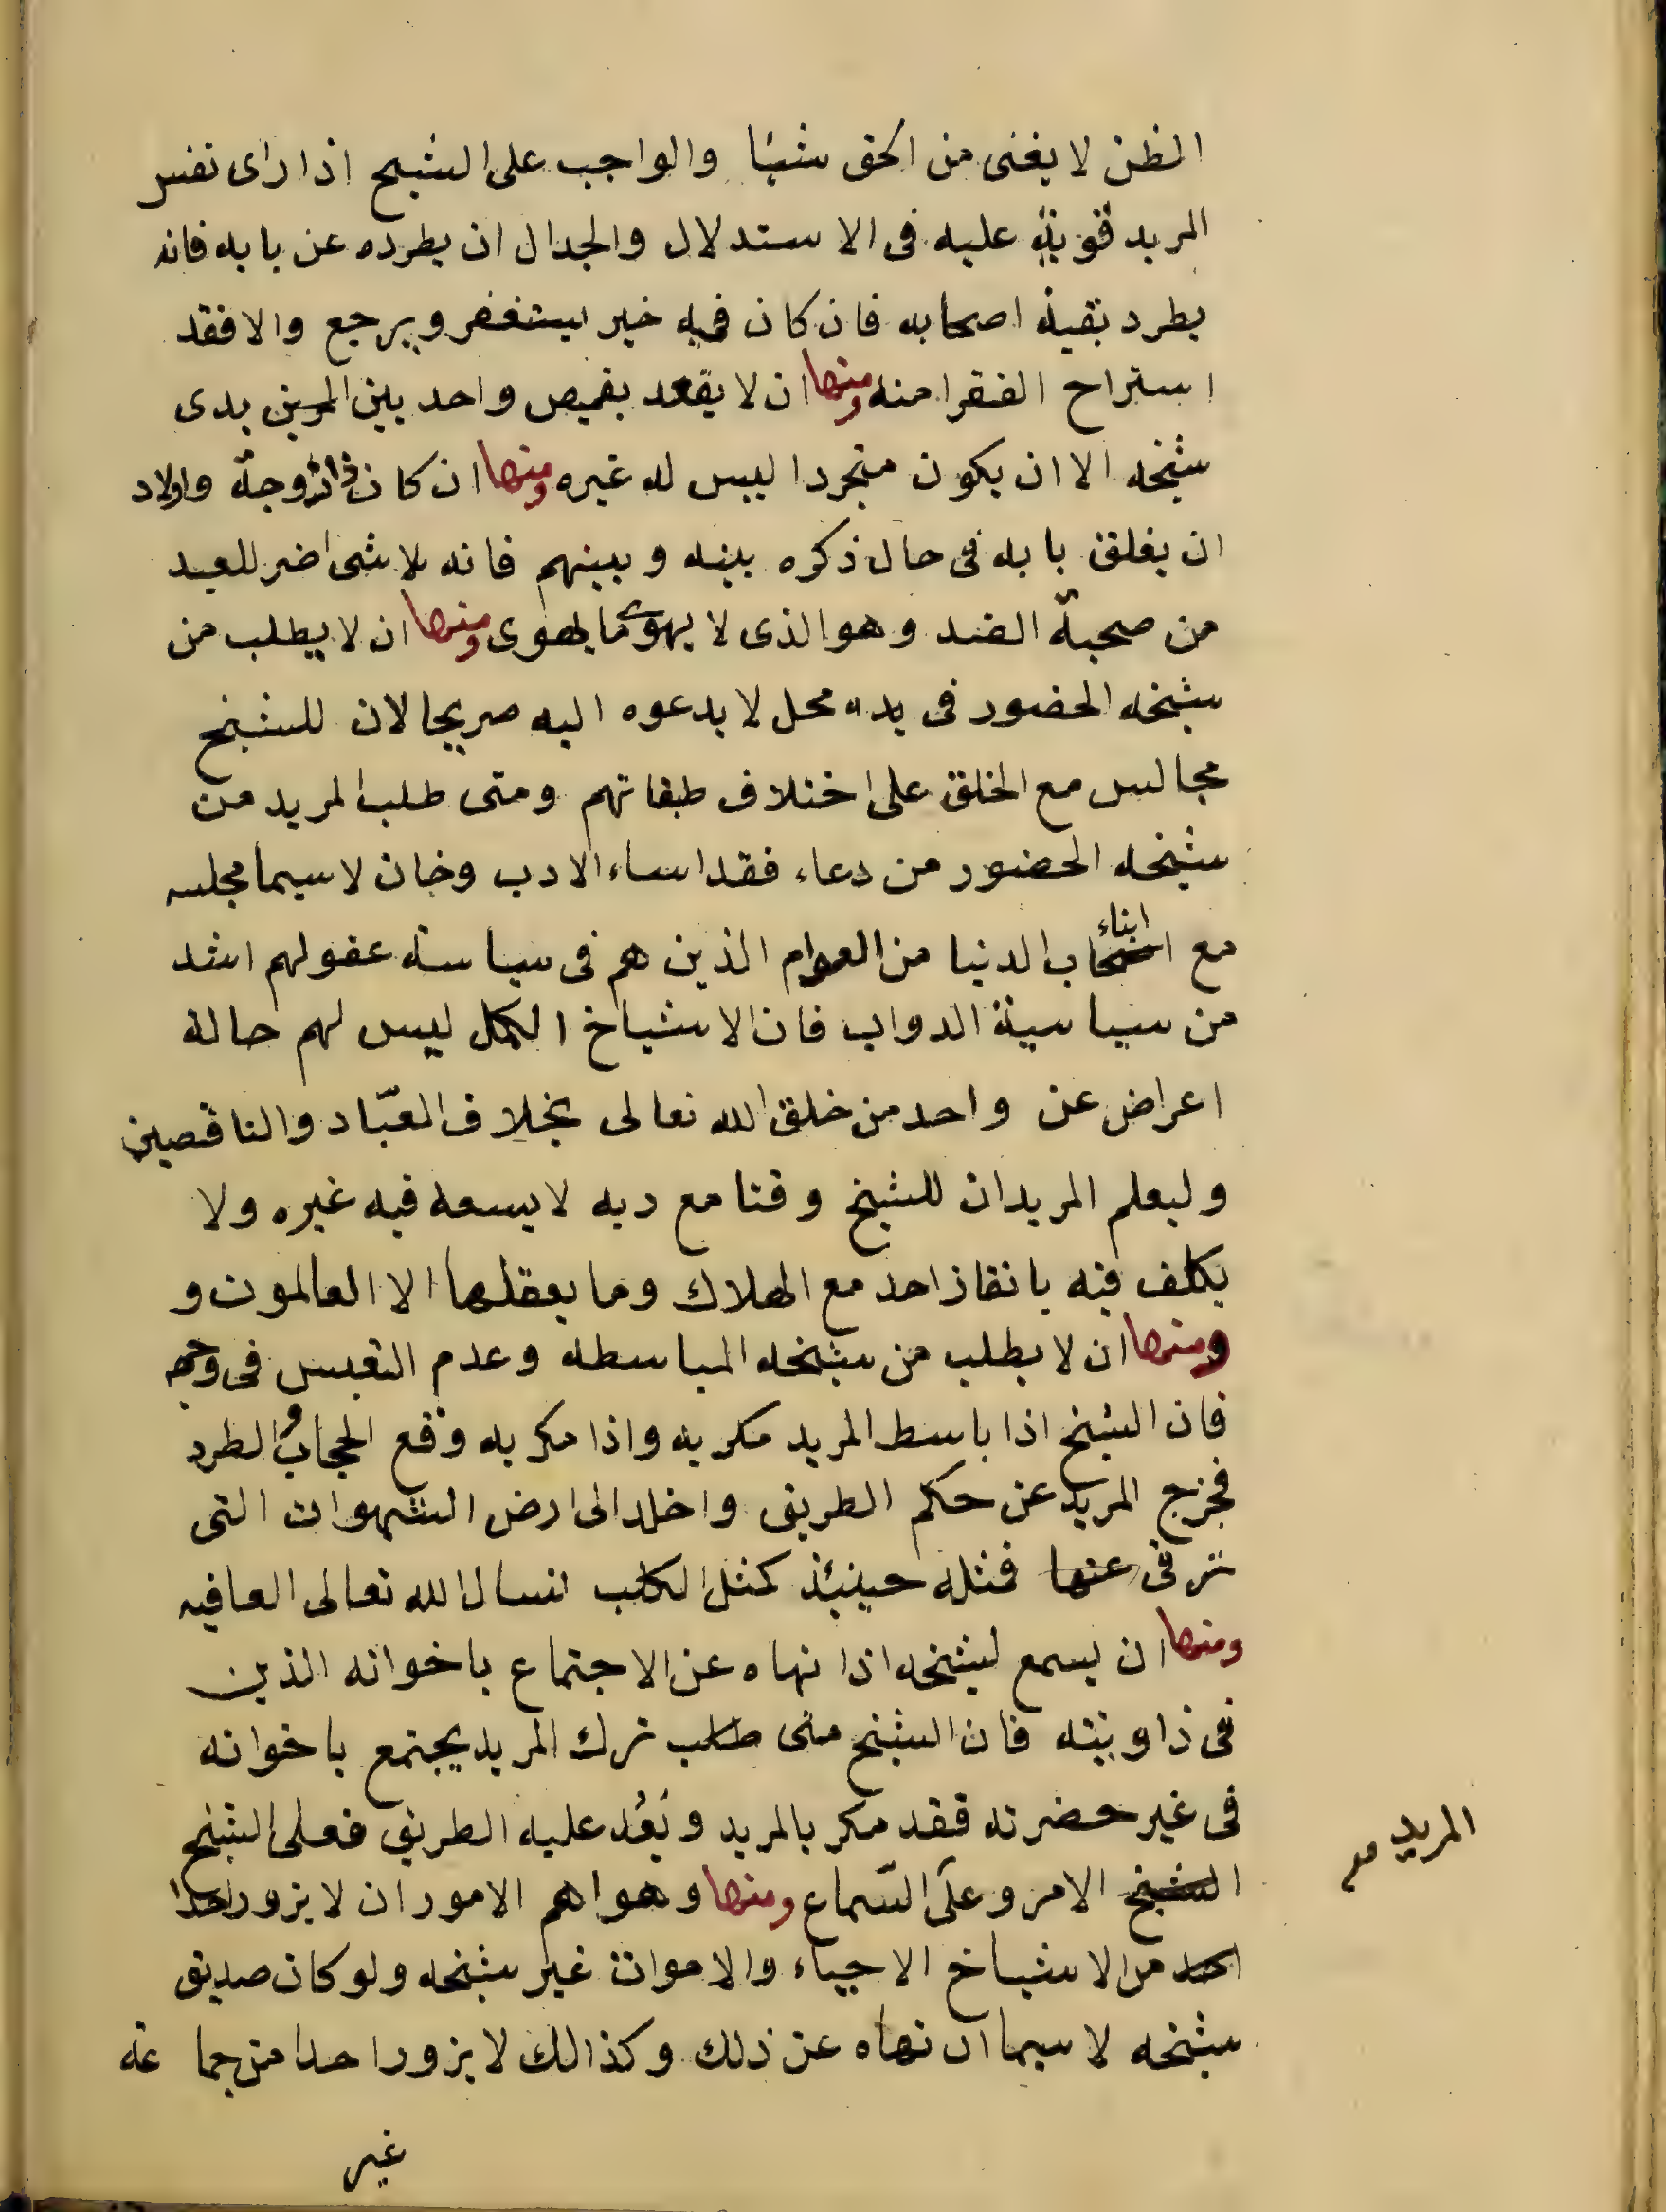 الظن لا يغنى من الحق شيئا والواجب على الشيخ اذا راى نفس
المريد قوية عليه فى الاستدلال والجدال ان يطرده عن بابه فانه
يطرد بقية اصحابه فان كان فيه خير ليستغفر ويرجع والا فقد
استراح الفقرا منه ومنها ان لا يقعد بقميص واحد بين يدى
شيخه الا ان يكون متجردا ليس له غيره ومنها ان كان ذا زوجة واولاد
ان يغلق بابه فى حال ذكره بينه وبينهم فانه لا شى اضر للعبد
من صحبة الضد وهو الذى لا يهوى ما يهوى ومنها ان لا يطلب من
شيخه الحضور فى محل لا يدعوه اليه صريحا لان للشيخ
مجالس مع الخلق على اختلاف طبقاتهم ومتى طلب المريد من
شيخه الحضور من دعاء فقد اساء الادب وخان لا سيما مجلسه
مع ابناء الدنيا من العوام الذين هم فى سياسة عقولهم اشد
من سياسية الدواب فان الاشياخ الكمل ليس لهم حالة
اعراض عن واحد من خلق الله تعالى بخلاف العبّاد والناقصين
وليعلم المريد ان للشيخ وقتا مع ربه لا يسعه فيه غيره ولا
يكلف فيه بانقاذ احد مع الهلاك وما يعقلها الا العالمون و
ومنها ان لا يطلب من شيخه المباسطه وعدم التعبس فى وجهه
فان الشيخ اذا باسط المريد مكر به واذا مكر به وقع الحجاب والطرد
فخرج المريد عن حكم الطريق واخلد الى ارض الشهوات التى
ترقى عنها فمثله حينئذ كمثل الكلب نسال الله تعالى العافيه
ومنها ان يسمع لشيخه اذا نهاه عن الاجتماع باخوانه الذين
فى زاويته فان الشيخ متى طلب ترك المريد يجتمع باخوانه
فى غير حضرته فقد مكر بالمريد وبَعُد عليه الطريق فعلى الشيخ
الشيخ الامر وعلى السّماع ومنها وهو اهم الامور ان لا يزور احدا
احد من الاشياخ الاحياء والاموات غير شيخه ولو كان صديق
شيخه لا سيما ان نهاه عن ذلك وكذالك لا يزور احدا من جماعة
غير
المريد صح